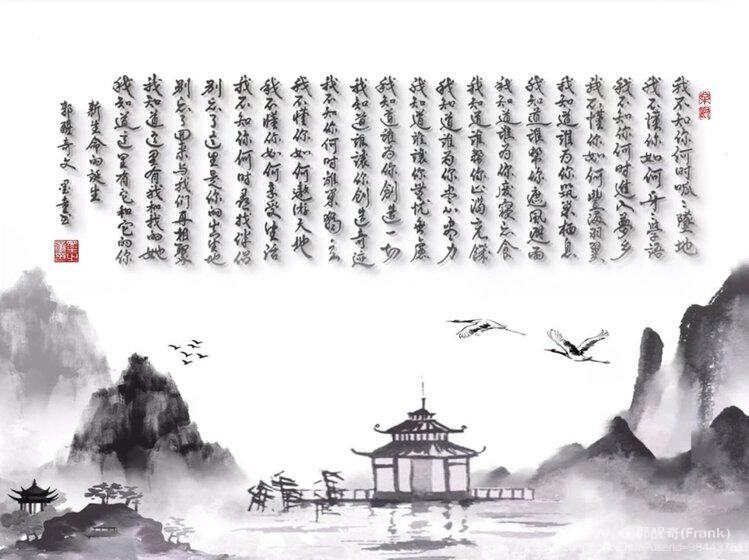 我不知你何时呱呱墜地
我不懂你如何牙牙学语
我不知你何时进入梦乡
我不懂你如何丰满羽翼
我知道谁为你筑巢栖息
我知道谁帮你遮风避雨
我知道谁为你废寝忘食
我知道谁帮你止渴充饥
我知道谁为你尽心尽力
我知道谁让你无忧无虑
我知道谁为你创造一切
我知道谁让你创生奇迹
我不知你何时离巢独立
我不懂你如何遨游天地
我不懂你如何享受生活
我不知你何时寻找伴侣
别忘了这里是你的出生地
别忘了回来与我们再相聚
我知道这里有我和我的她
我知道这里有它和它的你
新生命的诞生
郭醒奇文
郭醒奇(Frank)